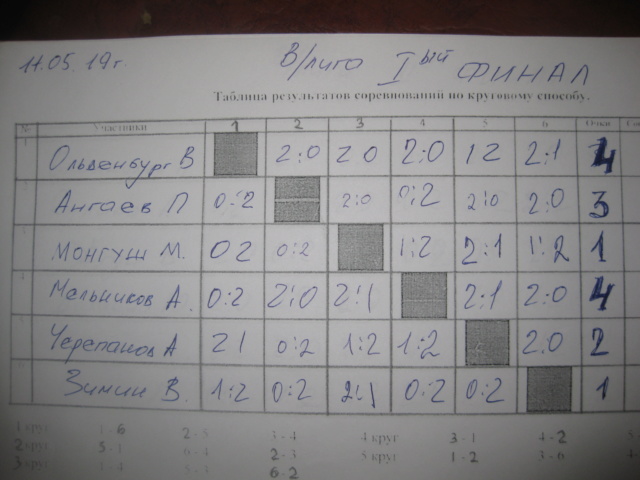 11.05.19г. В/лига I ый ФИНАЛ
Таблица результатов соревнований по круговому способу.
№ Участники 1 2 3 4 5 6 Очки
Ольденбург В 2:0 2 0 2:0 1 2 2:1 4
Ангаев П 0:2 2:0 0:2 2:0 2:0 3
Монгуш М. 0 2 0:2 1:2 2:1 1:2 1
Мельников А. 0:2 2:0 2:1 2:1 2:0 4
Черепанов А 2 1 0:2 1:2 1:2 2:0 2
Зимин В. 1:2 0:2 2:1 0:2 0:2 1
1 круг 1 - 6 2 - 5 3 - 4 4 круг 3 - 1 4 - 2
2 круг 5 - 1 6 - 4 2 - 3 5 круг 1 - 2 3 - 6
3 круг 1 - 4 5 - 3 6 - 2